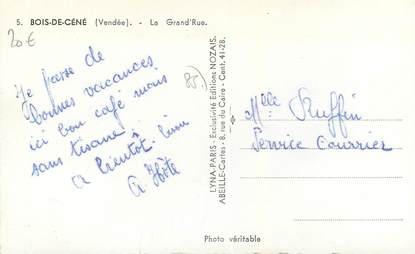 5. BOIS-DE-CÉNÉ (Vendée). - La Grand'Rue.
20€
Je passe de
bonnes vacances.
ici bon café mais
sans tisane!
A bientot.
A. Hôte
85.)
LYNA-PARIS - Exclusivité Editions NOZAIS.
ABEILLE-Cartes - 8, rue du Caire - Cent. 41-28.
Mlle Ruffin
Service Courrier
Photo véritable